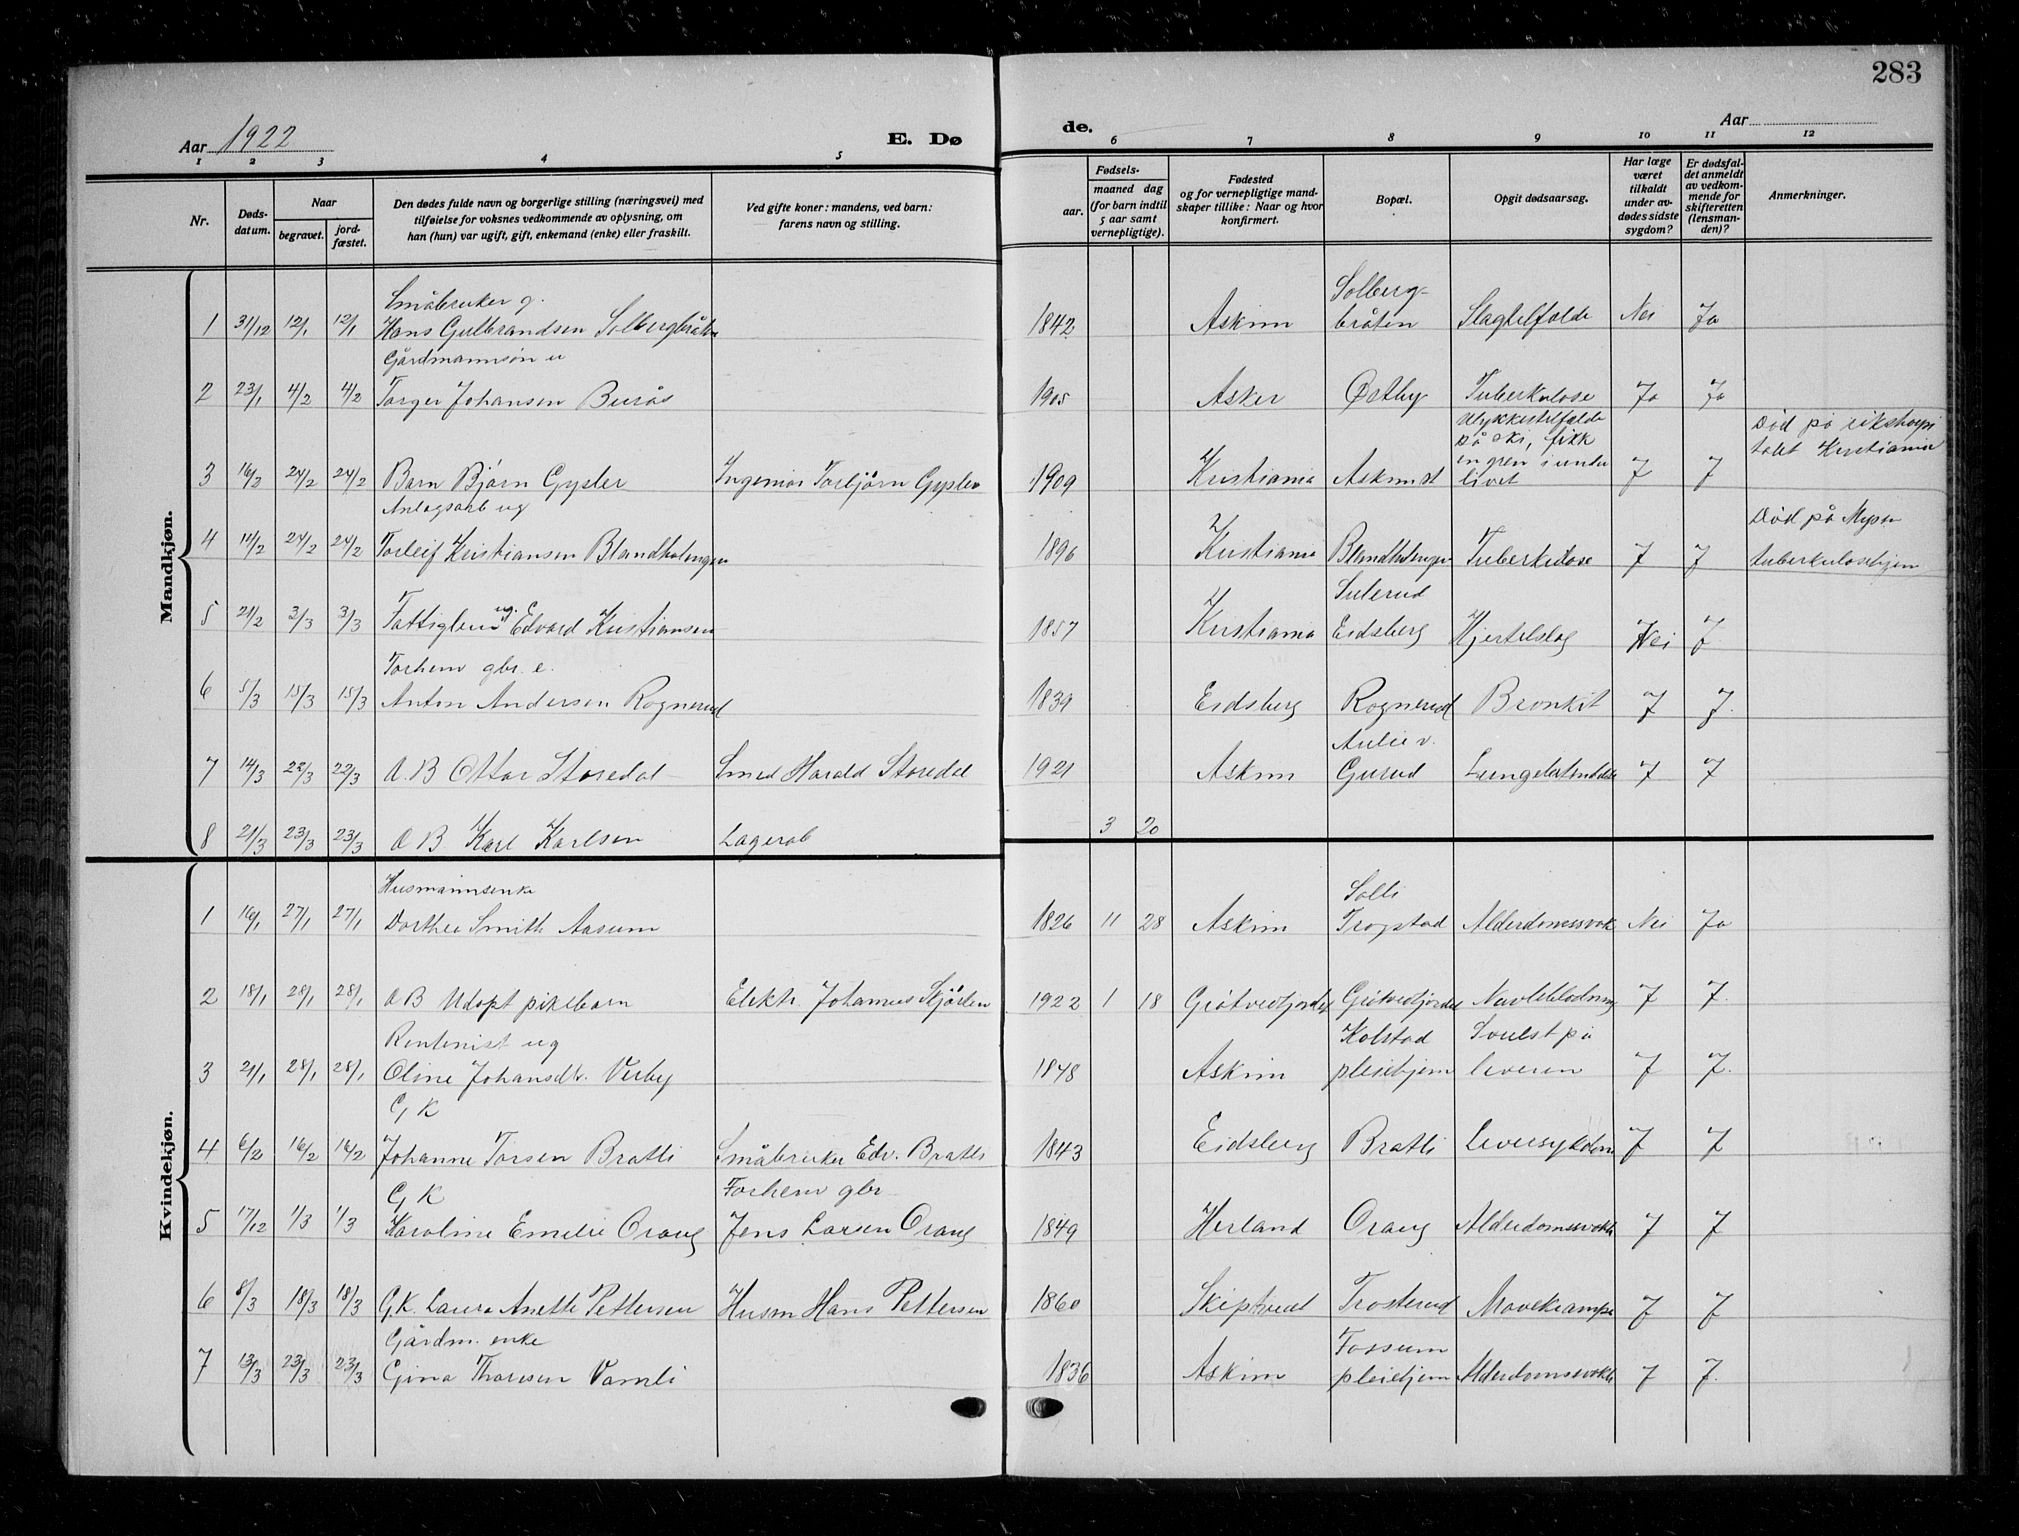 283
Aar 1922
E. Dø
de.
Aar
1 2 3 4 5
6 7 8 9 10 11 12
Nr.
Døds-
datum.
Naar
begravet.
jord-
fæstet.
Den dødes fulde navn og borgerlige stilling (næringsvei) med
tilføielse for voksnes vedkommende av oplysning, om
han (hun) var ugift, gift, enkemand (enke) eller fraskilt.
Ved gifte koner: mandens, ved barn:
farens navn og stilling.
Fødsels-
aar.
maaned dag
(for barn indtil
5 aar samt
vernepligtige).
Fødested
og for vernepligtige mand-
skaper tillike: Naar og hvor
konfirmert.
Bopæl.
Opgit dødsaarsag.
Har læge
været
tilkaldt
under av-
dødes sidste
sygdom?
Er dødsfal-
det anmeldt
av vedkom-
mende for
skifteretten
(lensman-
den)?
Anmerkninger.
Mandkjøn.
Småbruker g.
1 31/12 12/1 12/1 Hans Gulbrandsen Solbergbråten 1842 Askim Solberg-
bråten Slagtilfælde Nei Ja
Gårdmannsøn u
2 23/1 4/2 4/2 Torger Johansen Burås 1905 Asker Østby Tuberkulose Ja Ja
3 16/2 24/2 24/2 Barn Bjørn Gysler Ingeniør Torbjørn Gysler 1909 Kristiania Askim st Ulykkestilfælde
på ski, fikk
en gren i under
livet J J Død på rikshospi
talet Kristiania
Anlegsarb ug
4 14/2 24/2 24/2 Torleif Kristiansen Blandholengen 1896 Kristiania Blandholengen Tuberkulose J J Død på Mysen
tuberkulosehjem
5 24/2 3/3 3/3 Fattiglem ug. Edvard Kristiansen 1857 Kristiania Sulerud
Eidsberg Hjerteslag Nei J
Forhenv gbr. e.
6 5/3 15/3 15/3 Anton Andersen Rognerud 1839 Eidsberg Rognerud Bronkit J J.
7 14/3 22/3 22/3 A.B Ottar Storedal Smed Harald Storedal 1921 Askim Aulie v.
Gurud Lungebetendelse J J
8 21/3 23/3 23/3 A B Karl Karlsen Lagerarb 3 20
Kvindekjøn.
Husmannsenke
1 16/1 27/1 27/1 Dorthea Smith Aasum 1826 11 28 Askim Solli
Trøgstad Alderdomssvak Nei Ja
2 18/1 28/1 28/1 A B Udøpt pikebarn Elektr. Johannes 1922 1 18 Grøtvedtjordet Grøtvedtjordet Navleblødning J J.
Rentenist ug
3 21/1 28/1 28/1 Oline Johansdt. Verby 1848 Askim Kolstad
pleiehjem Svulst på
leveren J J.
G K
4 6/2 16/2 16/2 Johanne Torsen Bratli Småbruker Edv. Bratli 1843 Eidsberg Bratli Leversykdom J J
G K Forhenv gbr
5 17/12 1/3 1/3 Karoline Emelie Oraug Jens Larsen Oraug 1849 Herland Oraug Alderdomssvakh J J
6 8/3 18/3 18/3 G.K. Laura Anette Pettersen Husm Hans Pettersen 1860 Skiptvedt Trosterud Mavekrampe J J
Gårdm. enke
7 13/3 23/3 23/3 Gina Thoresen Vamli 1836 Askim Fossum
pleiehjem Alderdomssvakh J J.